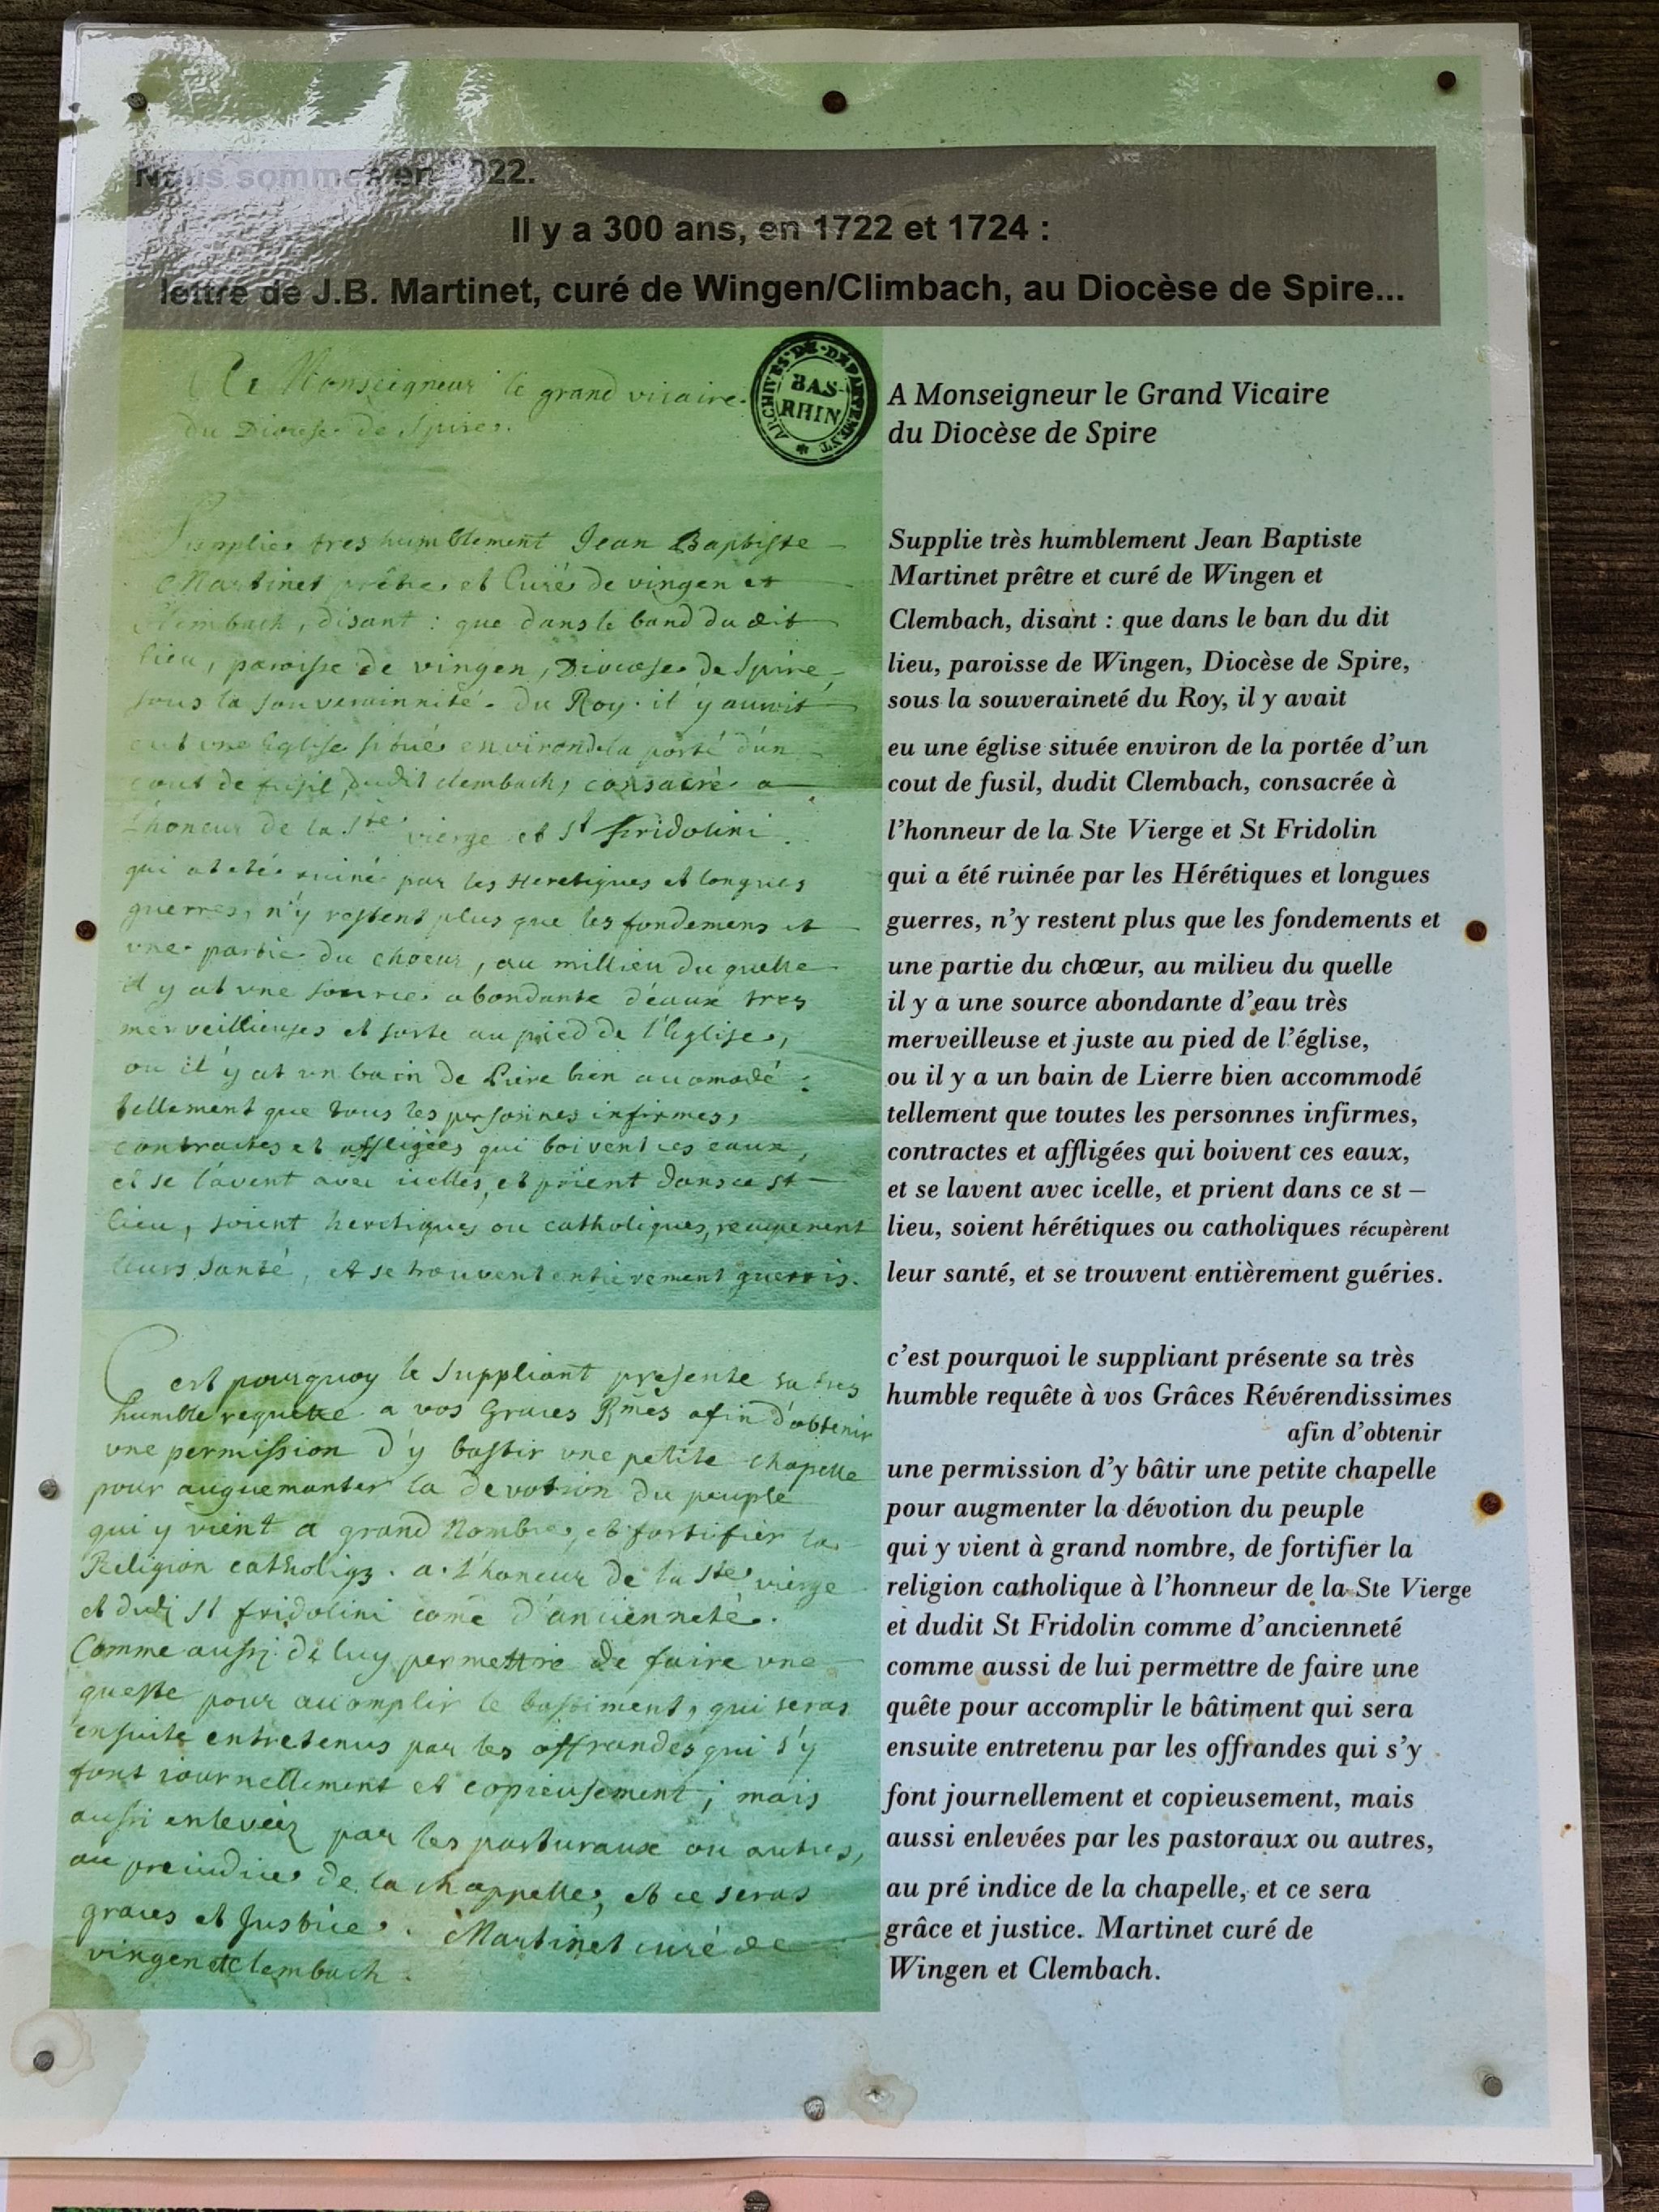 Nous sommes en 2022.
Il y a 300 ans, en 1722 et 1724 :
lettre de J.B. Martinet, curé de Wingen/Climbach, au Diocèse de Spire...
A Monseigneur le grand vicaire
du Diocese de Spire.
ARCHIVES DE DEPARTEMENT
BAS-
RHIN
Supplie tres humblement Jean Baptiste
Martinet prêtre et Curé de vingen et
Clembach, disant : que dans le band du dit
lieu, paroisse de vingen, Diocese de Spire,
sous la souverainnité du Roy. il y auroit
eut une Eglise situé environ de la porté d'un
cout de fusil dudit clembach, consacré a
L'honeur de la Ste vierge et St fridolini
qui at eté ruiné par les Heretiques et longues
guerres, n'y restent plus que les fondemens et
une partie du choeur, au millieu du quelle
il y at une source abondante d'eaux tres
merveillieuses et sorte au pied de l'Eglise,
ou il y at un bain de Piere bien accomodé :
tellement que tous les personnes infirmes,
contractes et affligées qui boivent ces eaux,
et se lavent avec icelles, et prient dans ce st
lieu, soient heretiques ou catholiques, recuperent
leurs santé, et se trouvent entierement guerris.
C'est pourquoy le suppliant presente sa tres
humble requette a vos Graces Rmes afin d'obtenir
une permission d'y bastir une petite chapelle
pour auguemanter la devotion du peuple
qui y vient a grand Nombre, et fortifier la
Religion catholiq3. a L'honeur de la Ste vierge
et dudj St fridolini come d'ancienneté.
Comme aussj de luy permettre de faire une
queste pour accomplir le bastiment, qui seras
ensuite entretenus par les offrandes qui s'y
font journellement et copieusement ; mais
aussi enleveéz par les pasturaux ou autres,
au preiudice de la chappelle, et ce seras
graces et Justice. Martinet curé de
vingen et Clembach.
A Monseigneur le Grand Vicaire
du Diocèse de Spire
Supplie très humblement Jean Baptiste
Martinet prêtre et curé de Wingen et
Clembach, disant : que dans le ban du dit
lieu, paroisse de Wingen, Diocèse de Spire,
sous la souveraineté du Roy, il y avait
eu une église située environ de la portée d'un
cout de fusil, dudit Clembach, consacrée à
l'honneur de la Ste Vierge et St Fridolin
qui a été ruinée par les Hérétiques et longues
guerres, n'y restent plus que les fondements et
une partie du chœur, au milieu du quelle
il y a une source abondante d'eau très
merveilleuse et juste au pied de l'église,
ou il y a un bain de Lierre bien accommodé
tellement que toutes les personnes infirmes,
contractes et affligées qui boivent ces eaux,
et se lavent avec icelle, et prient dans ce st –
lieu, soient hérétiques ou catholiques récupèrent
leur santé, et se trouvent entièrement guéries.
c'est pourquoi le suppliant présente sa très
humble requête à vos Grâces Révérendissimes
afin d'obtenir
une permission d'y bâtir une petite chapelle
pour augmenter la dévotion du peuple
qui y vient à grand nombre, de fortifier la
religion catholique à l'honneur de la Ste Vierge
et dudit St Fridolin comme d'ancienneté
comme aussi de lui permettre de faire une
quête pour accomplir le bâtiment qui sera
ensuite entretenu par les offrandes qui s'y
font journellement et copieusement, mais
aussi enlevées par les pastoraux ou autres,
au pré indice de la chapelle, et ce sera
grâce et justice. Martinet curé de
Wingen et Clembach.